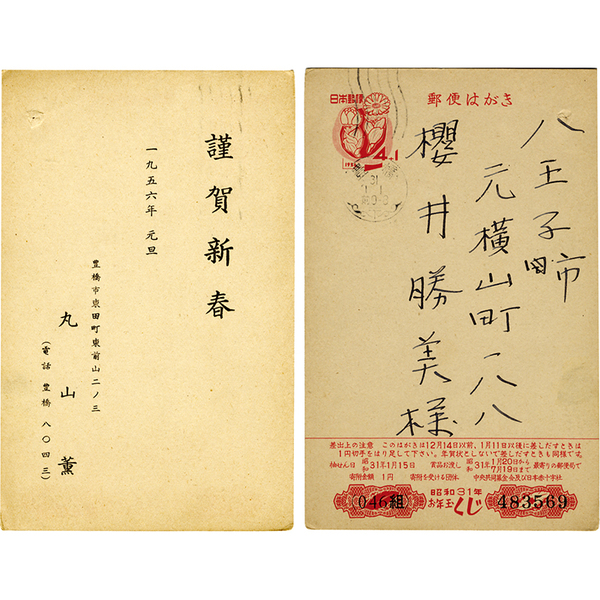 謹賀新春
一九五六年 元旦
豊橋市東田町東前山二ノ三
丸山薫
(電話 豊橋 八〇四三)
日本郵便
郵便はがき
4+1
八王子市
元横山町一八八
櫻井勝美様
差出上の注意 このはがきは12月14日以前、1月11日以後に差しだすときは
1円切手をはり足して下さい。年賀状としないで差しだすときも同様です。
抽せん日 昭和31年1月15日 賞品お渡し 昭和31年 1月20日から 7月19日まで 最寄りの郵便局で
寄附金額 1円 寄附を受ける団体 中央共同募金会及び日本赤十字社
昭和31年
046組 お年玉くじ 483569